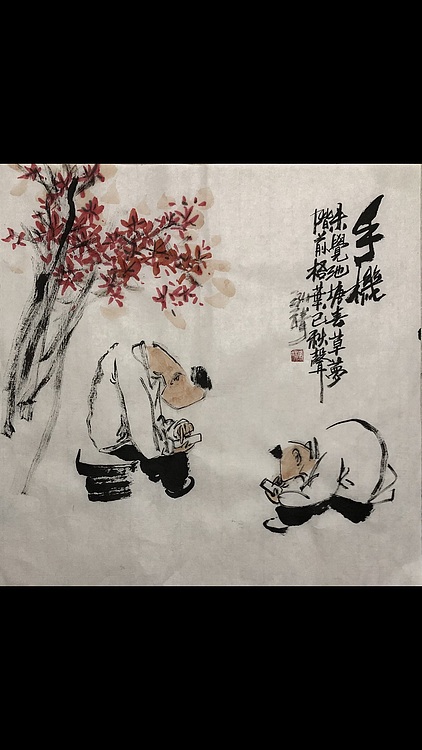 手機
未覺池塘春草夢
階前梧葉已秋聲